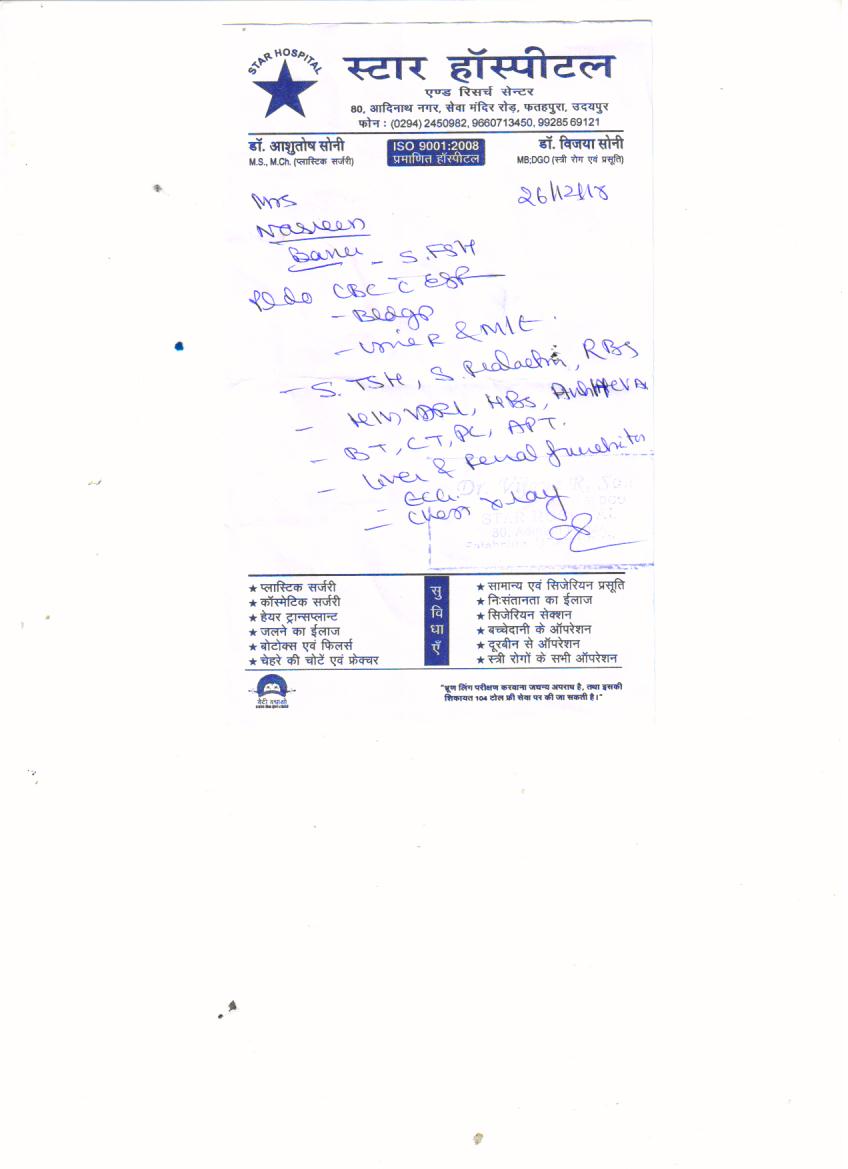 STAR HOSPITAL
स्टार हॉस्पीटल
एण्ड रिसर्च सेन्टर
80, आदिनाथ नगर, सेवा मंदिर रोड़, फतहपुरा, उदयपुर
फोन : (0294) 2450982, 9660713450, 99285 69121
डॉ. आशुतोष सोनी
M.S., M.Ch. (प्लास्टिक सर्जरी)
ISO 9001:2008
प्रमाणित हॉस्पीटल
डॉ. विजया सोनी
MB;DGO (स्त्री रोग एवं प्रसूति)
26/12/18
Mrs
Nasreen
Banu - S.FSH
CBC C ESR
- Bldgp
- Urine R & M/E
- S. TSH, S. Prolactin, RBS
- HIV, VDRL, HBS, Anti HCV
- BT, CT, PC, APT.
- Liver & Renal function
= Chest xray
★ प्लास्टिक सर्जरी
★ कॉस्मेटिक सर्जरी
★ हेयर ट्रान्सप्लान्ट
★ जलने का ईलाज
★ बोटोक्स एवं फिलर्स
★ चेहरे की चोटें एवं फ्रेक्चर
सुविधाएँ
★ सामान्य एवं सिजेरियन प्रसूति
★ निःसंतानता का ईलाज
★ सिजेरियन सेक्शन
★ बच्चेदानी के ऑपरेशन
★ दूरबीन से ऑपरेशन
★ स्त्री रोगों के सभी ऑपरेशन
बेटी बचाओ
"भ्रूण लिंग परीक्षण करवाना जघन्य अपराध है, तथा इसकी
शिकायत 104 टोल फ्री सेवा पर की जा सकती है।"